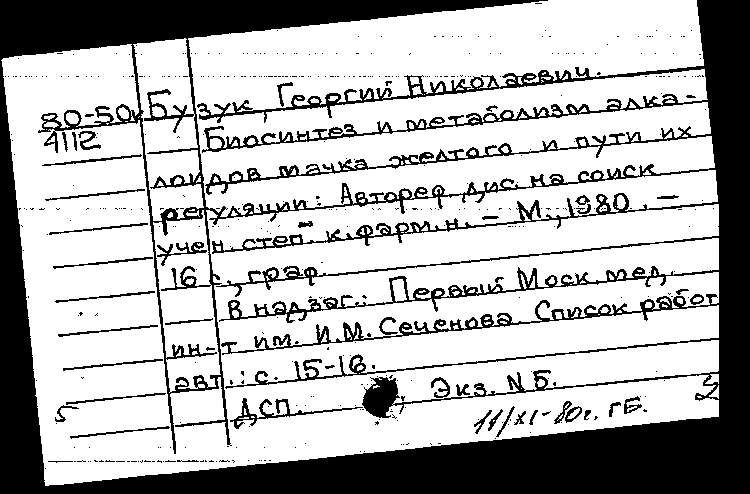 80-50к Бузук, Георгий Николаевич.
4112 Биосинтез и метаболизм алка-
лоидов мачка желтого и пути их
регуляции: Автореф. дис. на соиск
учен. степ. к.фарм.н. – М., 1980. –
16 с., граф.
В надзаг.: Первый Моск. мед.
ин-т им. И.М. Сеченова. Список работ
авт.: с. 15-16.
5 ДСП. Экз. N 5.
11/XI-80г. ГБ.